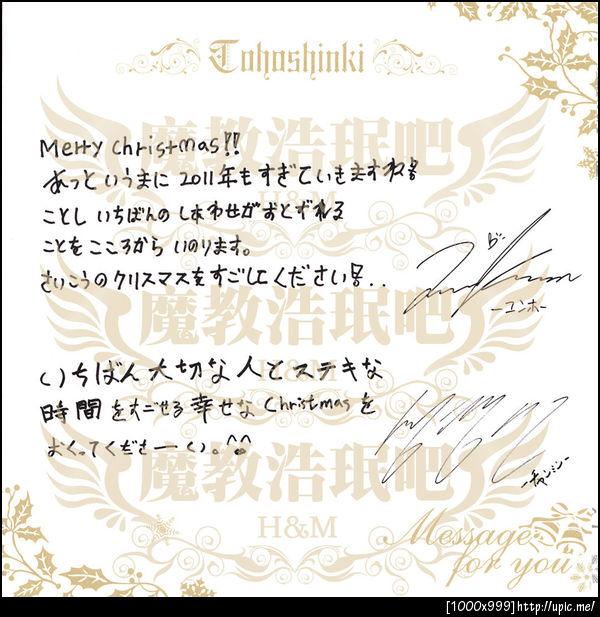 Tohoshinki
Merry Christmas!!
あっというまに 2011年もすぎていきますね!!
ことし いちばんの しあわせが おとずれる
ことを こころから いのります。
さいこうのクリスマスをすごしてください!!..
ーユンホー
いちばん大切な人とステキな
時間をすごせる幸せなChristmasを
おくってくださーい。^^
-チャンミン-
魔教浩珉吧
H&M
魔教浩珉吧
H&M
魔教浩珉吧
H&M
Message
for you
[1000x999]http://upic.me/